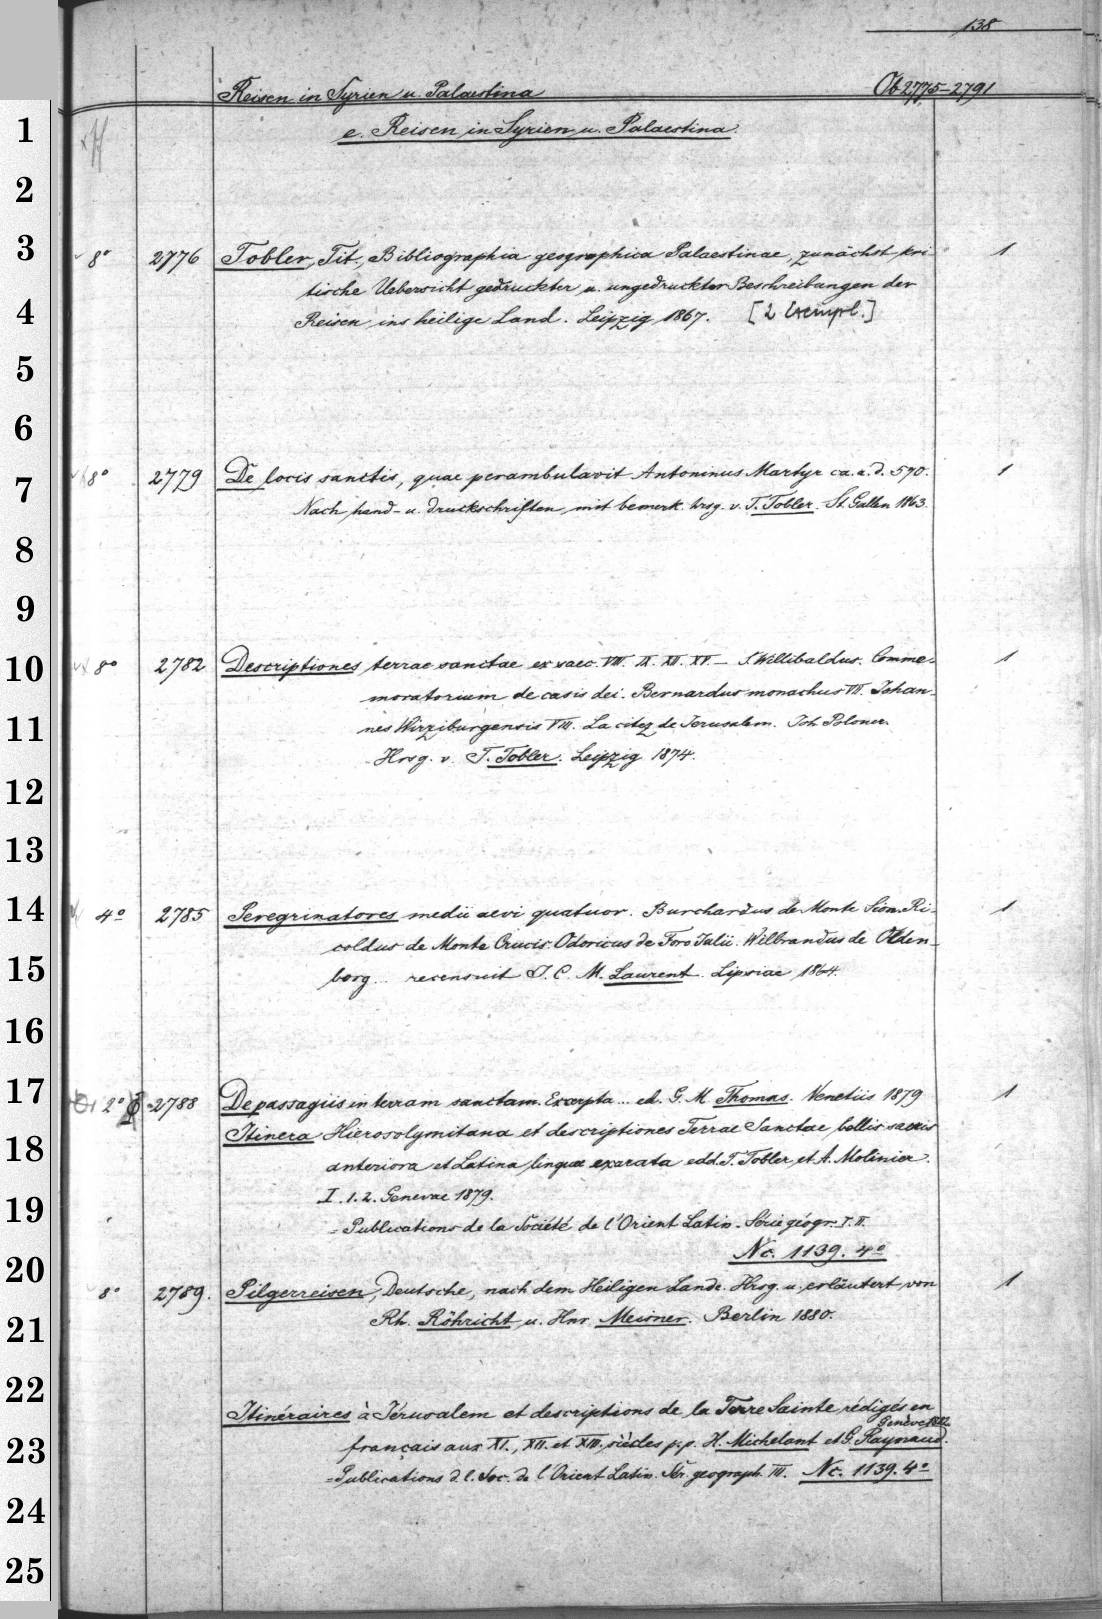 138
Reisen in Syrien u. Palaestina Ob 2775-2791
1 e. Reisen in Syrien u. Palaestina.
2
3 8° 2776 Tobler, Tit., Bibliographia geographica Palaestinae, zunächst kri- 1
tische Uebersicht gedruckter u. ungedruckter Beschreibungen der
4 Reisen ins heilige Land. Leipzig 1867. [2 Exempl.]
5
6
7 8° 2779 De locis sanctis, quae perambulavit Antoninus Martyr ca. a. d. 570. 1
Nach hand- u. druckschriften mit bemerk. hrsg. v. T. Tobler. St. Gallen 1863.
8
9
10 8° 2782 Descriptiones terrae sanctae ex saec. VIII. IX. XII. XV. — S. Willibaldus. Comme- 1
moratorium de casis dei. Bernardus monachus VII. Johan-
11 nes Wirziburgensis VIII. La citez de Jerusalem. Joh. Poloner.
Hrsg. v. T. Tobler. Leipzig 1874.
12
13
14 4° 2785 Peregrinatores medii aevi quatuor. Burchardus de Monte Sion. Ri- 1
coldus de Monte Crucis. Odoricus de Foro Julii. Wilbrandus de Olden-
15 borg .. recensuit J. C. M. Laurent. Lipsiae 1864.
16
17 2° 2788 De passagiis in terram sanctam. Excerpta ... ed. G. M. Thomas. Venetiis 1879 1
18 Itinera Hierosolymitana et descriptiones Terrae Sanctae, bellis sacris
anteriora et Latina lingua exarata edd. T. Tobler et A. Molinier.
19 I. 1. 2. Genevae 1879.
= Publications de la Société de l'Orient Latin. Série géogr. I. II.
Nc. 1139. 4°
20 8° 2789. Pilgerreisen, Deutsche, nach dem Heiligen Lande. Hrsg. u. erläutert von 1
21 Rh. Röhricht u. Hnr. Meisner. Berlin 1880.
22 Itinéraires à Jérusalem et descriptions de la Terre Sainte rédigés en
Genève 1882.
23 français aux XI., XII. et XIII. siècles p. p. H. Michelant et G. Raynaud.
= Publications d. l. Soc. de l'Orient Latin. Sér. geograph. III. Nc. 1139. 4°
24
25